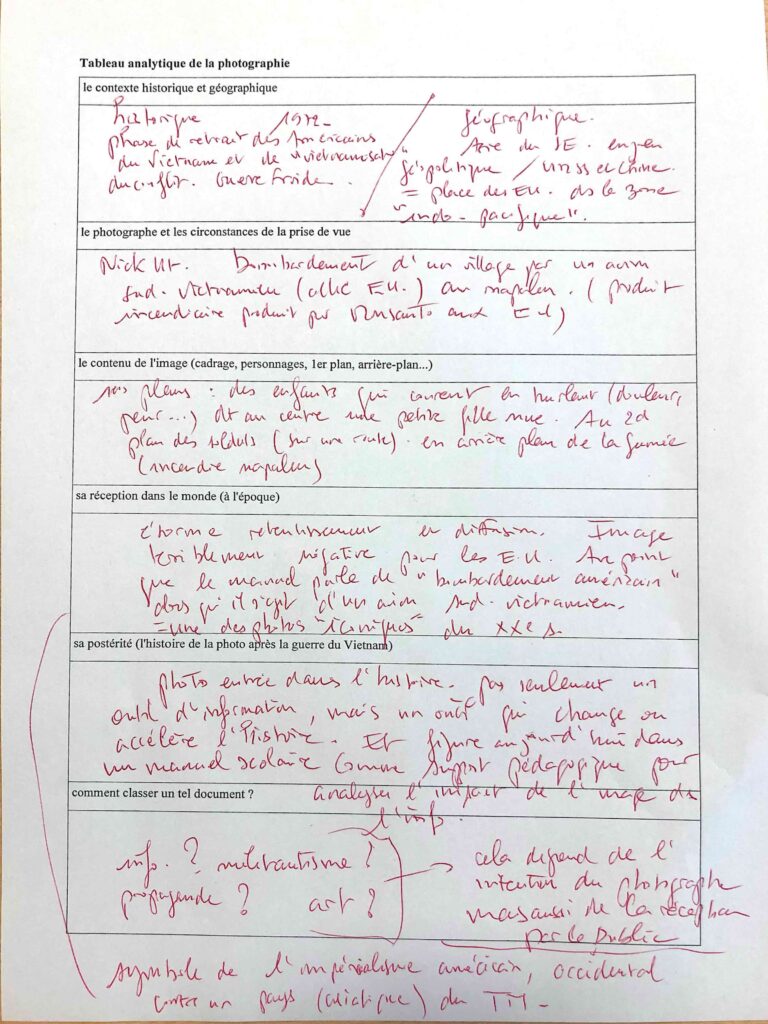 Tableau analytique de la photographie
le contexte historique et géographique
historique 1972 -
phase de retrait des Américains
du Vietnam et de "vietnamisation"
du conflit. Guerre froide.
géographique.
Asie du SE. enjeu
géopolitique / URSS et Chine.
= place des EU. ds la zone
"indo - pacifique".
le photographe et les circonstances de la prise de vue
Nick Ut. Bombardement d'un village par un avion
sud-vietnamien (allié EU.) au napalm. (produit
incendiaire produit par Monsanto aux EU)
le contenu de l'image (cadrage, personnages, 1er plan, arrière-plan...)
plans : des enfants qui courent en hurlant (douleur,
peur...) dt au centre une petite fille nue. Au 2d
plan des soldats (sur une route). en arrière plan de la fumée
(incendie napalm)
sa réception dans le monde (à l'époque)
énorme retentissement et diffusion. Image
terriblement négative pour les E.U. Au point
que le manuel parle de "bombardement américain"
alors qu'il s'agit d'un avion sud-vietnamien.
= une des photos "iconiques" du XXe s.
sa postérité (l'histoire de la photo après la guerre du Vietnam)
photo entrée dans l'histoire. pas seulement un
outil d'information, mais un outil qui change ou
accélère l'Histoire. Et figure aujourd'hui dans
un manuel scolaire comme support pédagogique pour
analyser l'impact de l'image ds
l'info.
comment classer un tel document ?
info. ? militantisme ?
propagande ? art ?
cela dépend de l'
intention du photographe
mais aussi de la réception
par le public
symbole de l'impérialisme américain, occidental
contre un pays (asiatique) du TM -